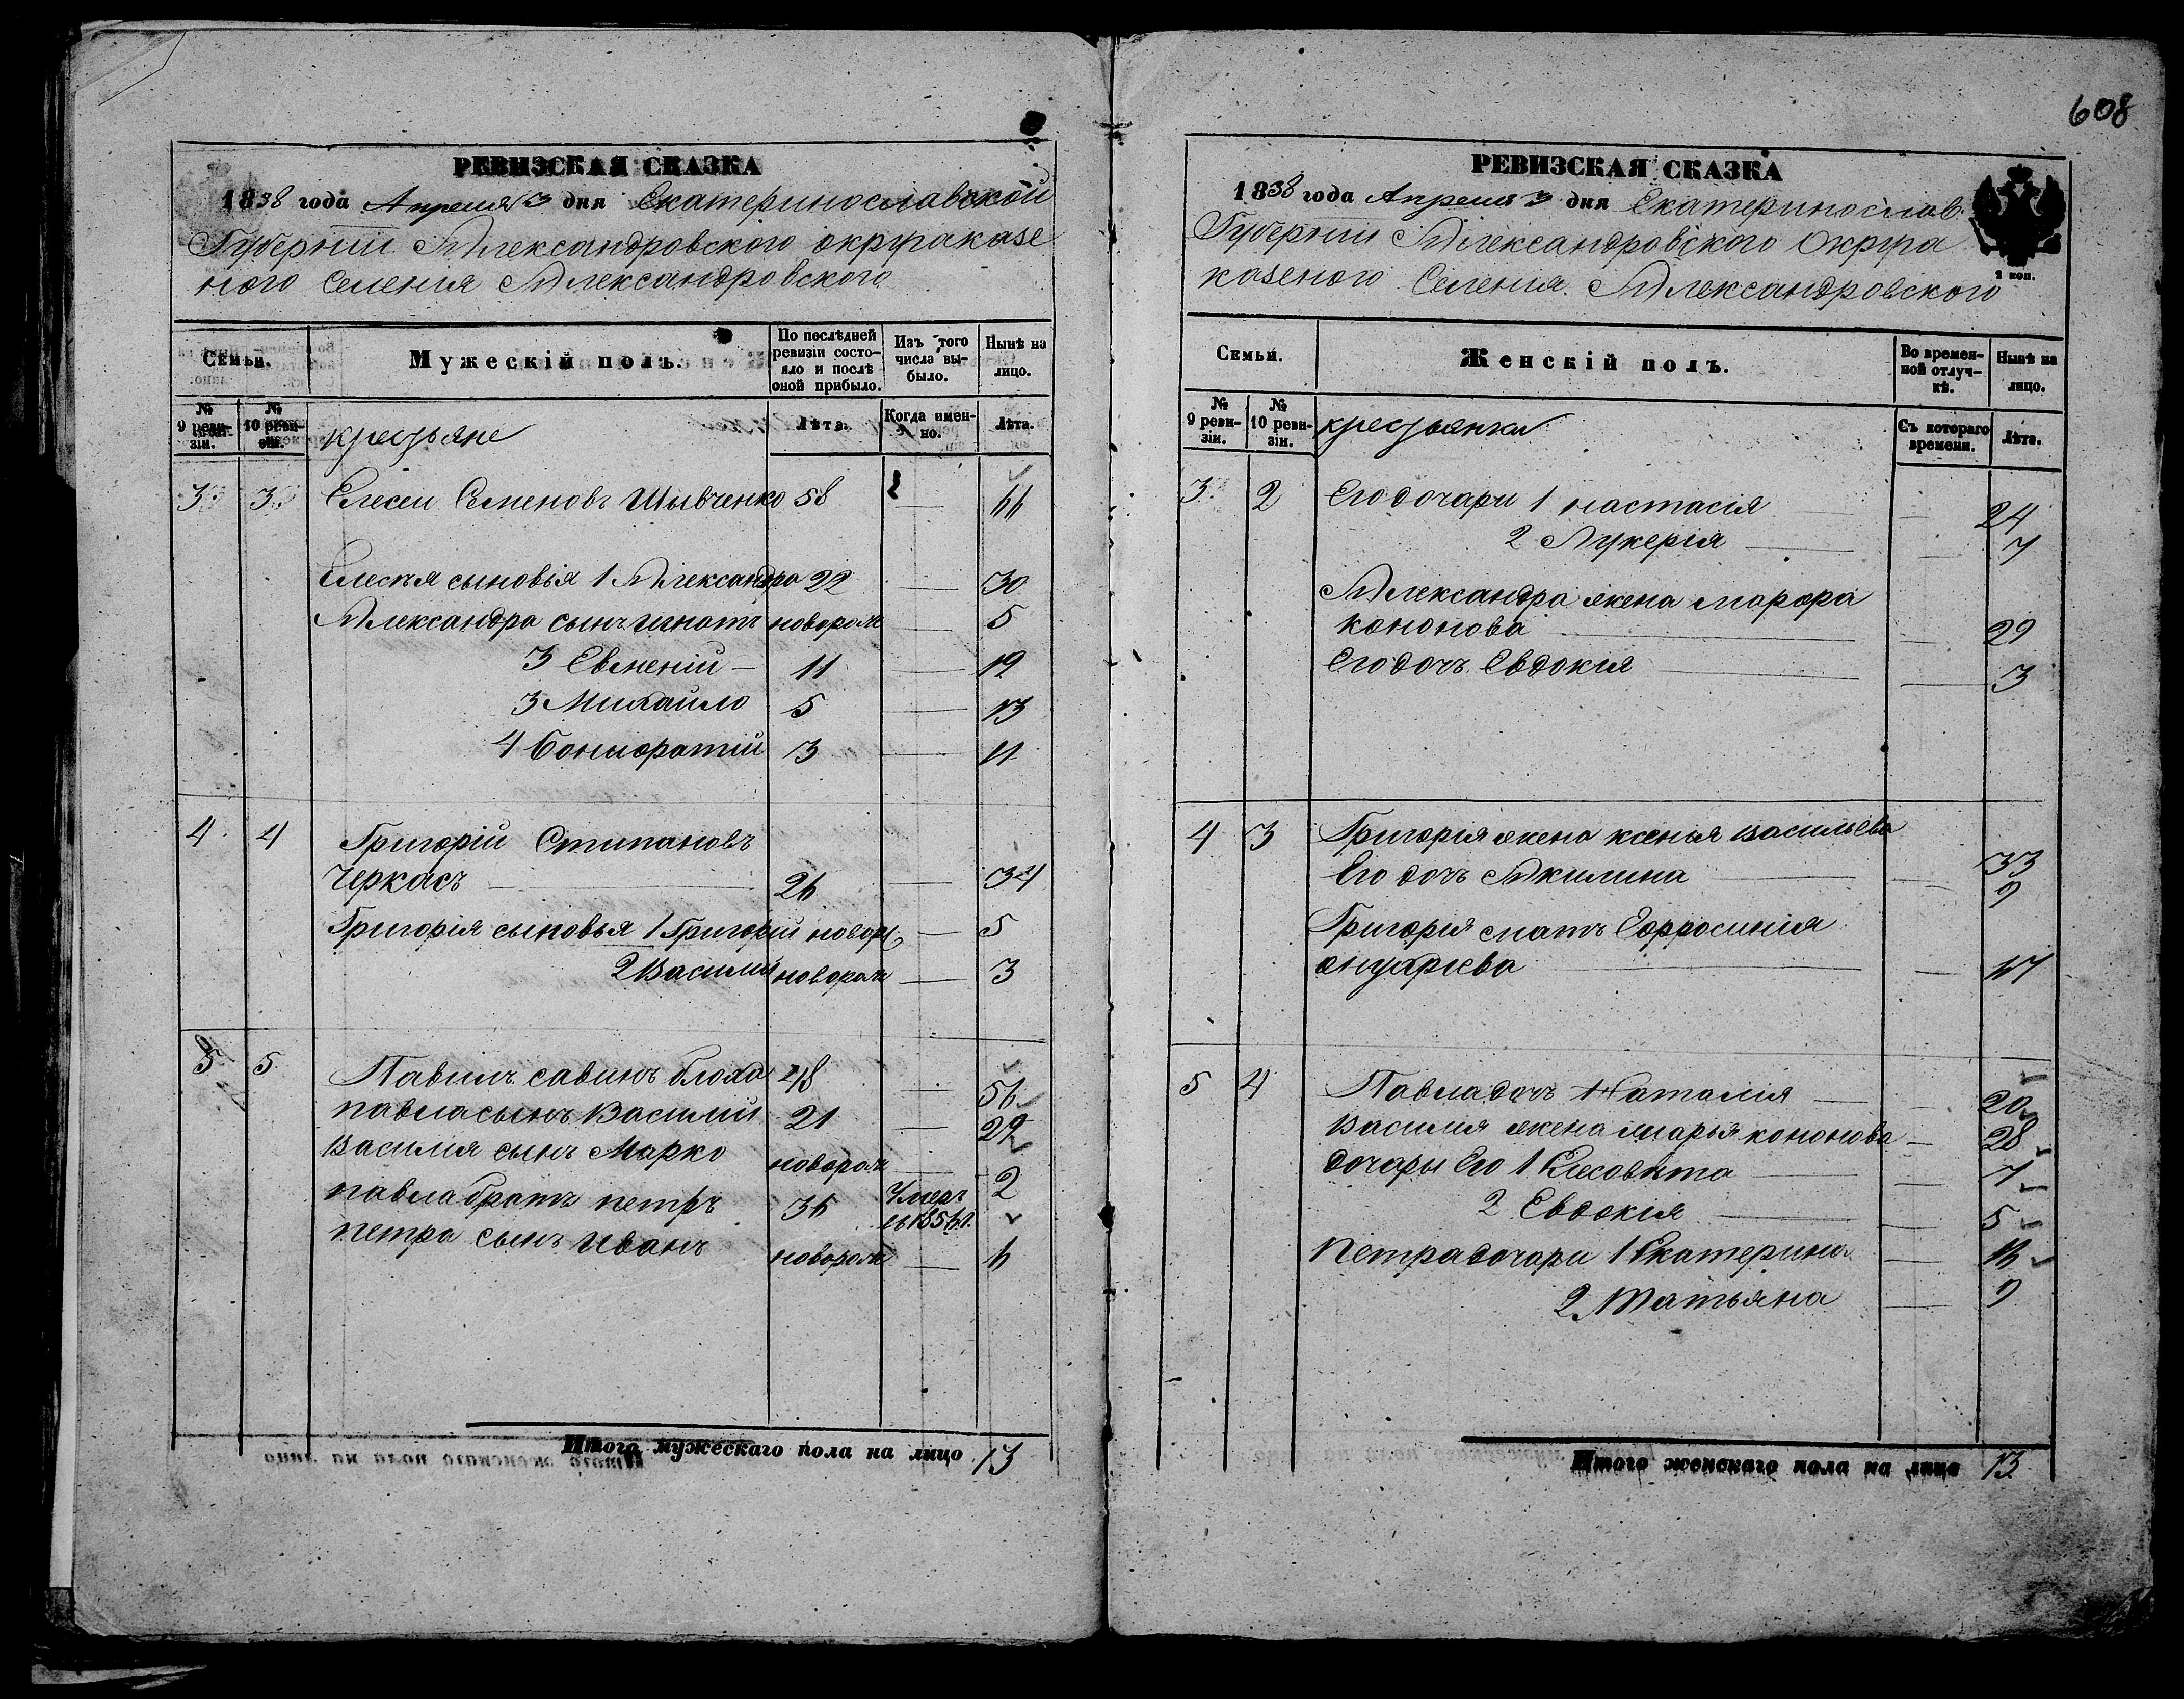 608
РЕВИЗСКАЯ СКАЗКА
1858 года Апреля 3 дня Екатеринославской
Губернии Александровского округа казе
ного Селения Александровского
Семьи.
Мужескій полъ.
По послѣдней ревизіи состо-яло и послѣ оной прибыло.
Изъ того числа вы-было.
Нынѣ на лицо.
№ 9 реви-зіи.
№ 10 реви-зіи.
крестьяне
Лѣта.
Когда имен-но.
Лѣта.
3 3 Елесеи Семеновъ Шывченко 58 — 66
Елесѣя сыновья 1 Александра 22 — 30
Александра сынъ игнатъ новорож — 5
3 Евмений — 11 — 19
3 Михайло 5 — 13
4 Бонифатій 3 — 11
4 4 Григорій Стипановъ
Черкасъ — 26 — 34
Григорія сыновья 1 Григорий новорж — 5
2 Василий новорож — 3
5 5 Павилъ савинъ блоха 48 — 56
павла сынъ Василий 21 — 29
Василия сынъ Марко новорож — 2
павла братъ петръ 36 Умеръ в 1856 г.
петра сынъ Иванъ новорож — 6
Итого мужескаго пола на лицо 13
РЕВИЗСКАЯ СКАЗКА
1858 года Апреля 3 дня Екатеринослав.
Губернии Александровского Округа
казеного Селения Александровского
2 коп.
Семьи.
Женскій полъ.
Во времен-ной отлуч-кѣ.
Нынѣ на лицо.
№ 9 реви-зіи.
№ 10 реви-зіи.
крестьянки
Съ котораго времени.
Лѣта.
3 2 Его дочари 1 настасія — 24
2 Лукерія — 7
Александра жена марфа
кононова — 29
Его дочь Евдокия — 3
4 3 Григорія жена ксенья васильева 33
Его дочъ Акилина — 9
Григорія матъ Ефросинія
— 67
5 4 Павла дочъ Наталія — 20
Василия жена марья кононова — 28
дочары Его 1 Елесовѣта — 7
2 Евдокія — 5
Петра дочари 1 Екатерина — 16
2 Татьяна — 9
Итого женскаго пола на лицо 13